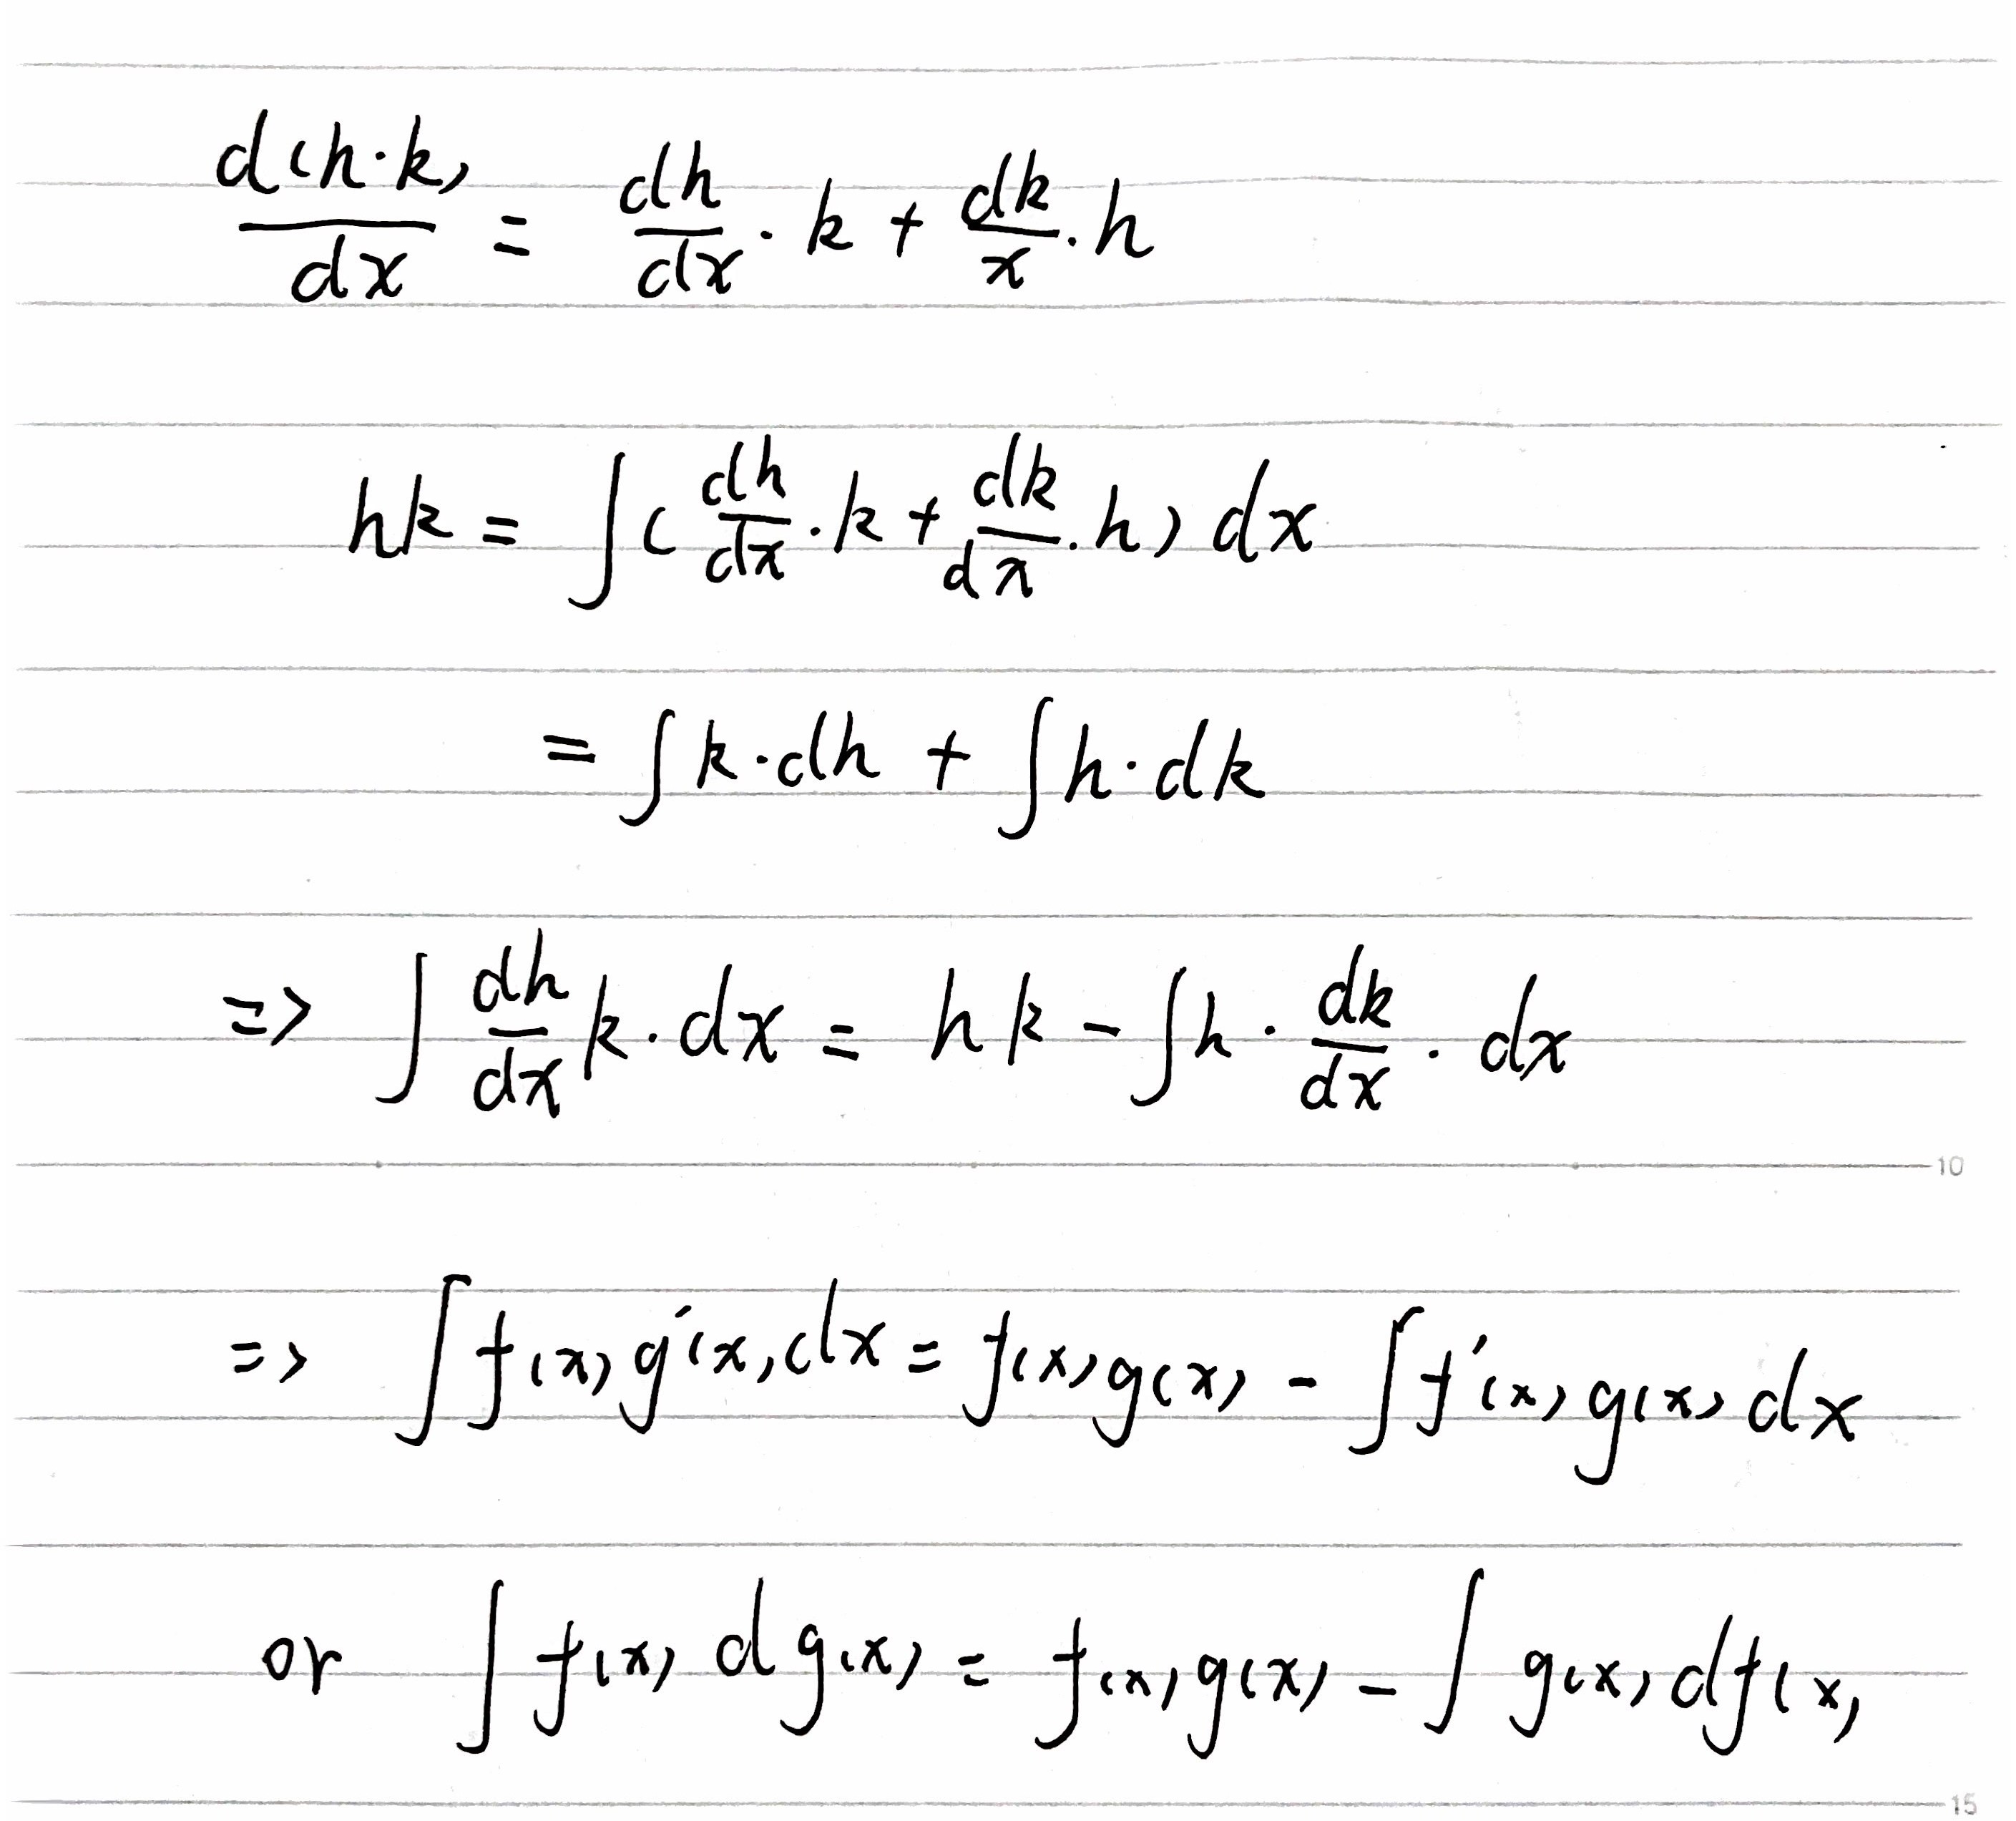 d(h·k)/dx = dh/dx · k + dk/x · h
hk = ∫(dh/dx · k + dk/dx · h) dx
= ∫k·dh + ∫h·dk
=> ∫ dh/dx k·dx = hk - ∫h · dk/dx · dx
10
=> ∫f(x)g'(x)dx = f(x)g(x) - ∫f'(x)g(x)dx
or ∫f(x) dg(x) = f(x)g(x) - ∫g(x)df(x)
15